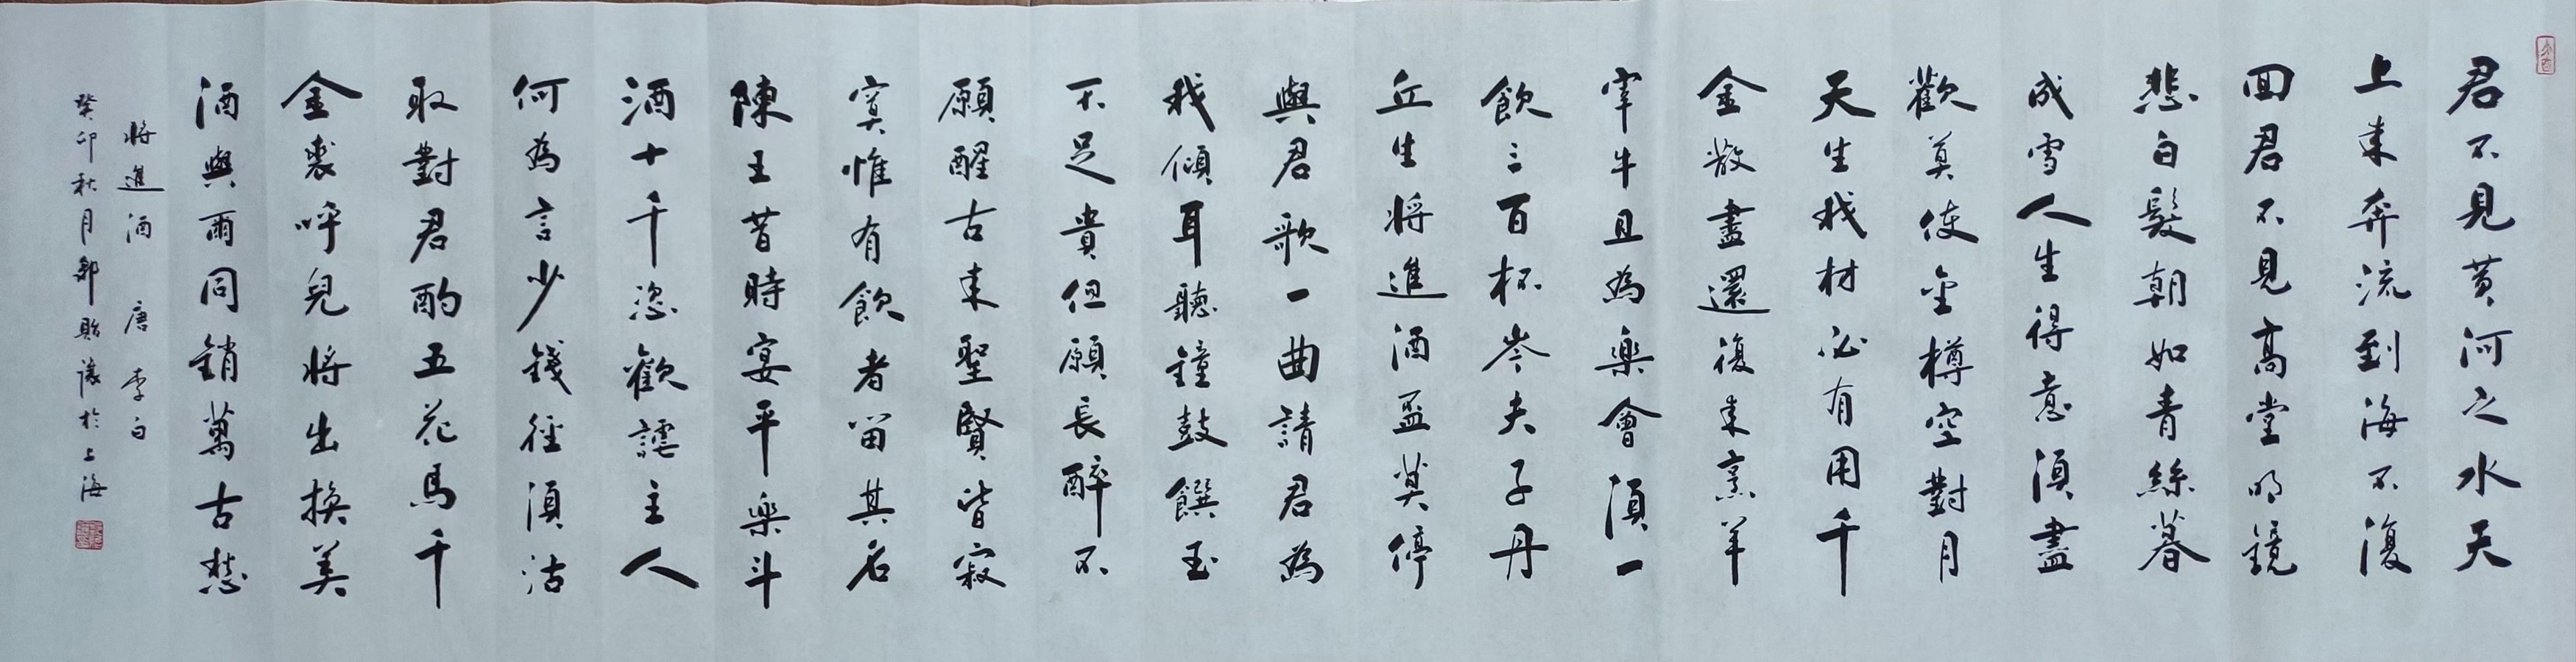 君不見黃河之水天
上來奔流到海不復
回君不見高堂明鏡
悲白髮朝如青絲暮
成雪人生得意須盡
歡莫使金樽空對月
天生我材必有用千
金散盡還復來烹羊
宰牛且為樂會須一
飲三百杯岑夫子丹
丘生將進酒盃莫停
與君歌一曲請君為
我傾耳聽鐘鼓饌玉
不足貴但願長醉不
願醒古來聖賢皆寂
寞惟有飲者留其名
陳王昔時宴平樂斗
酒十千恣歡謔主人
何為言少錢徑須沽
取對君酌五花馬千
金裘呼兒將出換美
酒與爾同銷萬古愁
將進酒 唐 李白
癸卯秋月鄒貽讓於上海